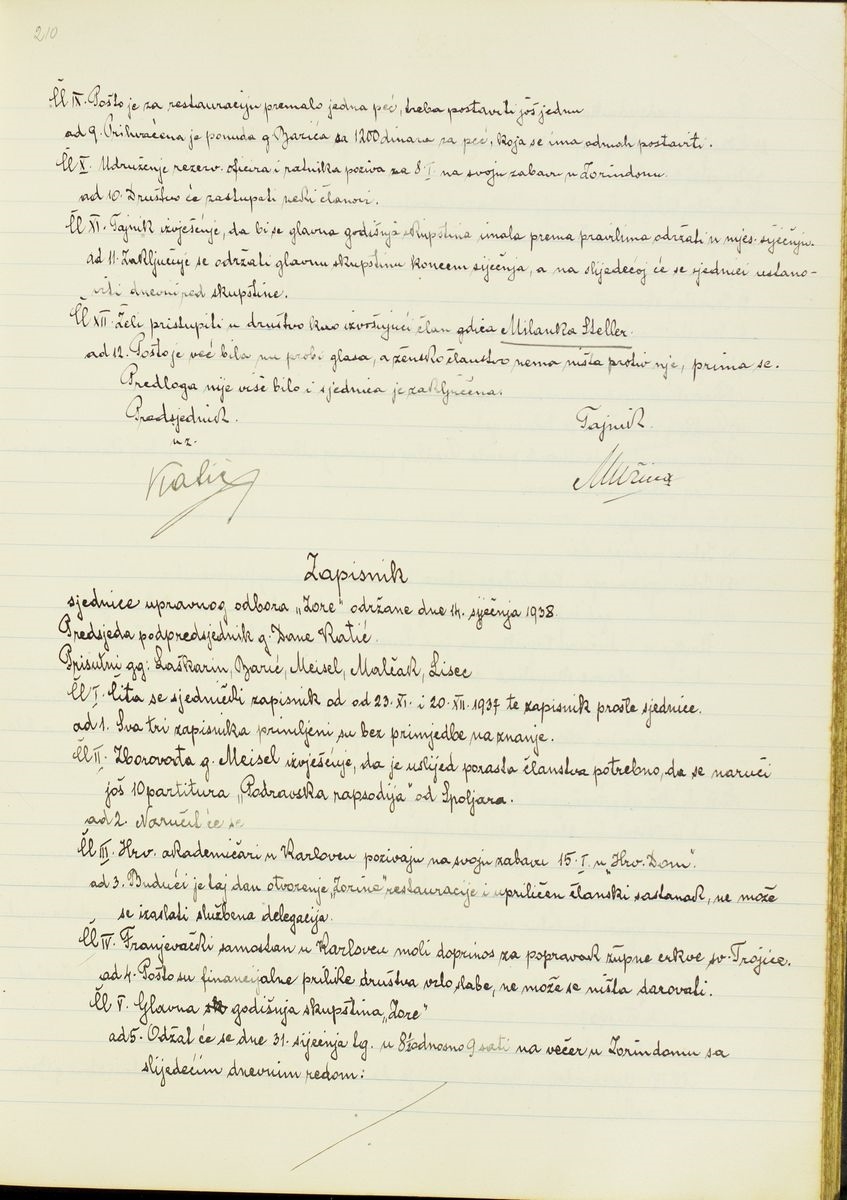 210
Čl IX. Pošto je za restauraciju premalo jedna peć, treba postaviti još jednu
ad 9. Prihvaćena je ponuda g. Barića sa 1200 dinara za peć, koja se ima odmah postaviti.
Čl X. Udruženje rezerv. oficira i ratnika poziva za 8. I. na svoju zabavu u Zorindomu.
ad 10. Društvo će zastupati neki članovi.
Čl XI. Tajnik izvješćuje, da bi se glavna godišnja skupština imala prema pravilima održati u mjes. siječnju.
ad 11. Zaključuje se održati glavnu skupštinu koncem siječnja, a na slijedećoj će se sjednici ustano-
viti dnevni red skupštine.
Čl XII. Želi pristupiti u društvo kao izvršujući član gdjica Milanka Steller.
ad 12. Pošto je već bila na probi glasa, a žensko članstvo nema ništa protiv nje, prima se.
Predloga nije više bilo i sjednica je zaključena.
Predsjednik. Tajnik.
uz.
Katić
Zapisnik
sjednice upravnog odbora „Zore" održane dne 14. siječnja 1938.
Predsjeda podpredsjednik g. Dane Katić.
Prisutni gg: Laškarin, Barić, Meisel, Malčak, Lisec
Čl I. Čita se sjednički zapisnik od od 23. XI. i 20. XII. 1937 te zapisnik prošle sjednice.
ad 1. Sva tri zapisnika primljeni su bez primjedbe na znanje.
Čl II. Zborovođa g. Meisel izvješćuje, da je uslijed porasta članstva potrebno, da se naruči
još 10 partitura „Podravska rapsodija" od Špoljara.
ad 2. Naručit će se
Čl III. Hrv. akademičari u Karlovcu pozivaju na svoju zabavu 15. I. u „Hrv. Dom".
ad 3. Budući je taj dan otvorenje „Zorine" restauracije i upriličen članski sastanak, ne može
se izaslati službena delegacija.
Čl IV. Franjevački samostan u Karlovcu moli doprinos za popravak župne crkve sv. Trojice.
ad 4. Pošto su financijalne prilike društva vrlo slabe, ne može se ništa darovati.
Čl V. Glavna godišnja skupština „Zore"
ad 5. Održat će se dne 31. siječnja tg. u 8½ odnosno 9 sati na večer u Zorindomu sa
slijedećim dnevnim redom: